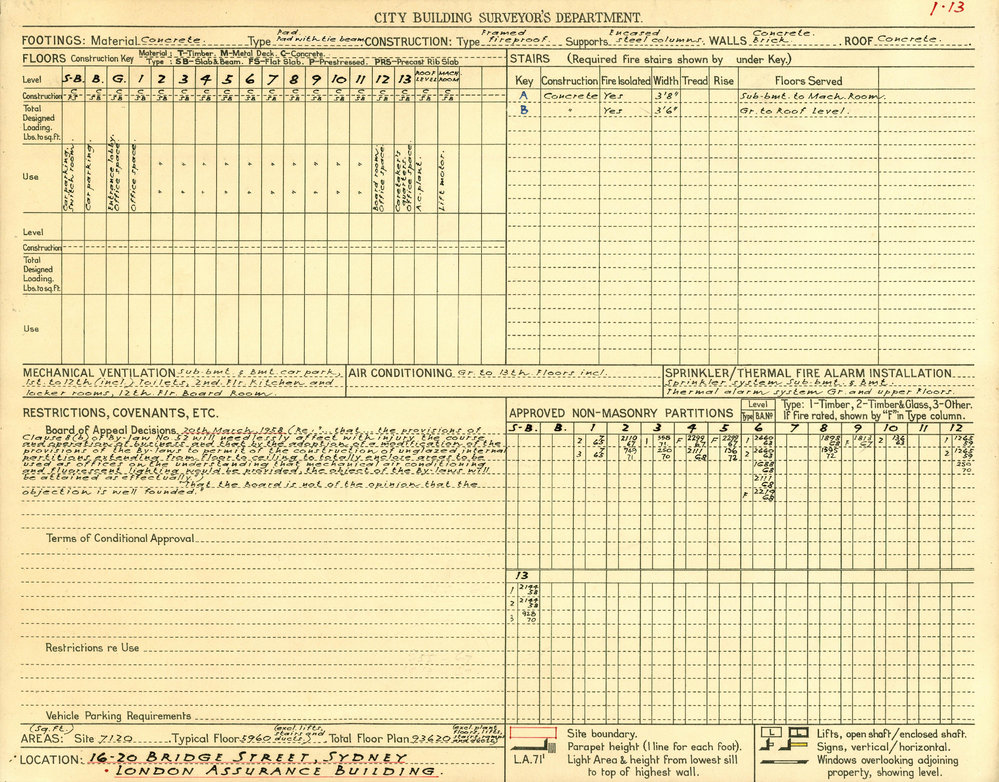 1·13
CITY BUILDING SURVEYOR'S DEPARTMENT.
FOOTINGS: Material Concrete. Type Pad Pad with tie beam CONSTRUCTION: Type Framed fireproof. Supports Encased steel columns. WALLS Concrete. Brick. ROOF Concrete.
FLOORS Construction Key Material: T-Timber. M-Metal Deck. C-Concrete.
Type: SB-Slab & Beam. FS-Flat Slab. P-Prestressed. PRS-Precast Rib Slab
Level S-B. B. G. 1 2 3 4 5 6 7 8 9 10 11 12 13 ROOF LEVEL MACH. ROOM
Construction C FS C SB C SB C SB C SB C SB C SB C SB C SB C SB C SB C SB C SB C SB C SB C SB C SB C SB
Total Designed Loading. Lbs. to sq. ft.
Use
Car parking. Switch room.
Car parking.
Entrance lobby. Office space
Office space
" " " " " " " " " "
" " " " " " " " " "
Board room. Office space
Caretaker's quarters. Office space.
A.C. plant.
Lift motor.
Level
Construction
Total Designed Loading. Lbs. to sq. ft.
Use
STAIRS (Required fire stairs shown by under Key.)
Key Construction Fire Isolated Width Tread Rise Floors Served
A Concrete Yes 3'8" Sub-bmt. to Mach. Room.
B " Yes 3'6" Gr. to Roof Level.
MECHANICAL VENTILATION Sub-bmt. & Bmt. car park,
1st. to 12th (incl.) Toilets, 2nd. Flr. Kitchen and
locker rooms, 12th. Flr. Board Room.
AIR CONDITIONING Gr. to 13th. Floors incl.
SPRINKLER/THERMAL FIRE ALARM INSTALLATION
Sprinkler system Sub-bmt. & Bmt.
Thermal alarm system Gr. and upper floors.
RESTRICTIONS, COVENANTS, ETC.
Board of Appeal Decisions 20th. March, 1958. (Re: "... that ... the provisions of
Clause 8(b) of By-law No 52 will needlessly affect with injury the course
and operation of business and that by the adoption of a modification of the
provisions of the By-laws to permit of the construction of unglazed internal
partitions extending from floor to ceiling to totally enclose areas to be
used as offices on the understanding that mechanical air conditioning
and fluorescent lighting would be provided, the object of the By-laws will
be attained as effectually.")
"That the Board is not of the opinion that the
objection is well founded."
Terms of Conditional Approval
Restrictions re Use
Vehicle Parking Requirements
APPROVED NON-MASONRY PARTITIONS
Level
Type B.A.Nº
Type: 1-Timber, 2-Timber & Glass, 3-Other.
If Fire rated, shown by "F" in Type column.
S-B. B. 1 2 3 4 5 6 7 8 9 10 11 12
13
1 2144 58
2 2144 58
3 928 70
(Sq. Ft.)
AREAS: Site 7120 Typical Floor 5960 (excl. lifts, stairs and ducts) Total Floor Plan 93620 (excl. plant floors, lifts, stairs, ramps and ducts)
LOCATION: 16-20 BRIDGE STREET, SYDNEY
LONDON ASSURANCE BUILDING.
Site boundary.
Parapet height (1 line for each foot).
L.A.71' Light Area & height from lowest sill
to top of highest wall.
L Lifts, open shaft/enclosed shaft.
Signs, vertical/horizontal.
Windows overlooking adjoining
property, showing level.